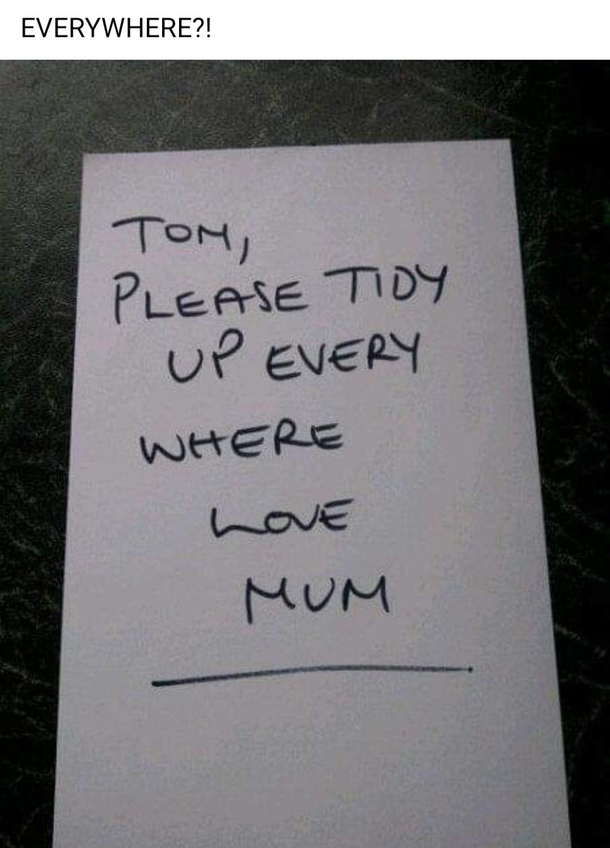 EVERYWHERE?!
TOM,
PLEASE TIDY
UP EVERY
WHERE
LOVE
MUM